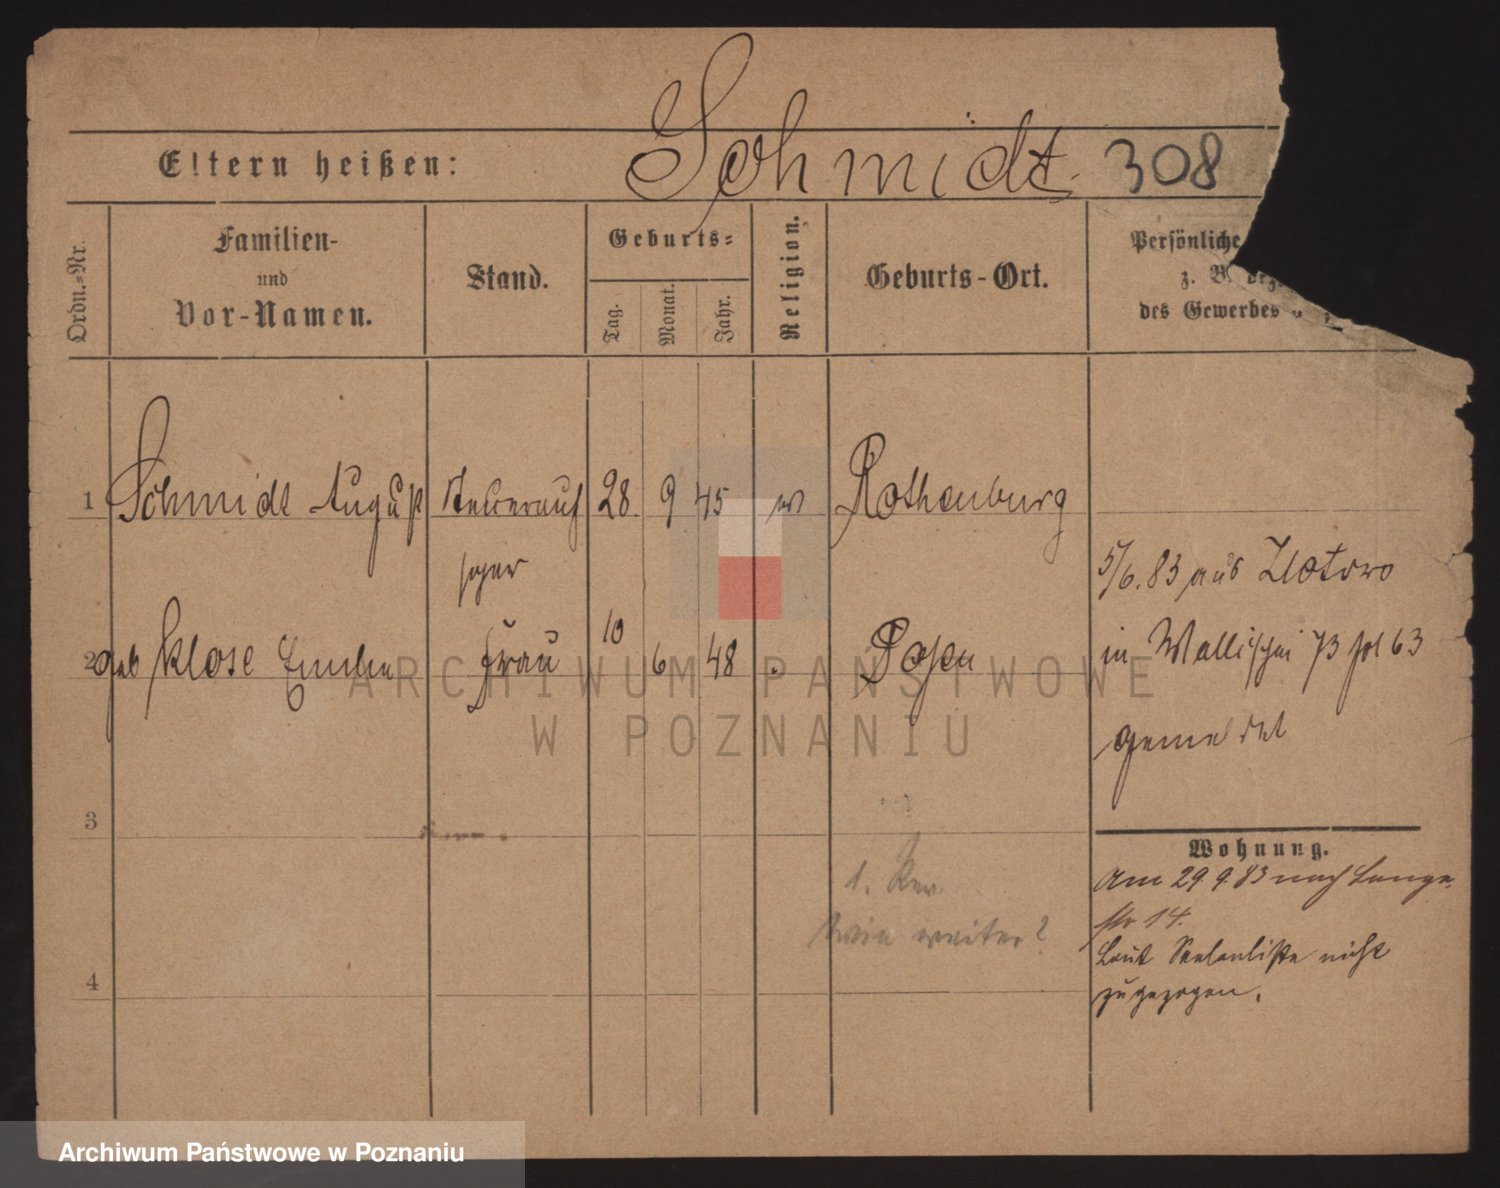 Schmidt. 308
Eltern heißen:
Ordn.=Nr.
Familien-
und
Vor-Namen.
Stand.
Geburts=
Tag.
Monat.
Jahr.
Religion.
Geburts-Ort.
Persönliche
z. B.
des Gewerbes
1 Schmidt August Steuerauf 28. 9 45 ev Rothenburg
seher
5/6. 83 aus Zlotowo
2 geb Klose Emilie Frau 10 6 48 Posen
in Wallischei 73 pol 63
gemeldet
3
Wohnung.
1. Rev.
Am 29 9. 83 nach Lange
str 14.
Wie weiter?
Laut Seelenliste nicht
zugezogen.
4
ARCHIWUM PAŃSTWOWE
W POZNANIU
Archiwum Państwowe w Poznaniu